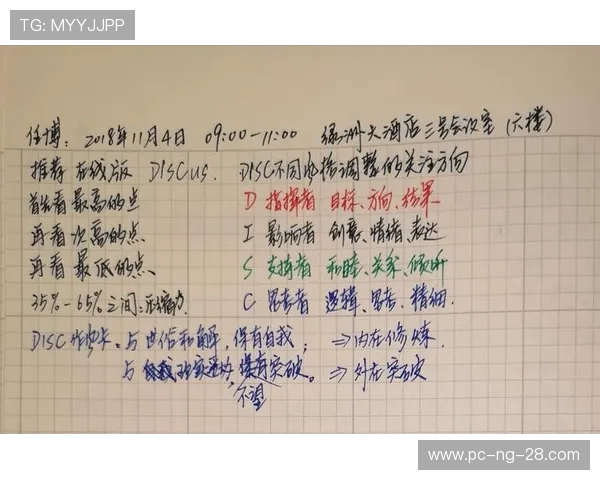 TG: MYYJJPP
任博: 2018年11月4日 09:00-11:00 绿洲大酒店三号会议室（六楼）
推荐在线版 DISCus. DISC不同风格调整的关注方向
首先看最高的点 D 指挥者 目标、方向、结果
再看次高的点 I 影响者 创意、情绪、表达
再看最低的点、 S 支持者 和睦、关系、倾听
35%-65%之间: C 思考者 逻辑、思考、精细.
DISC 与 和解,保有自我; ⇒内在修炼.
与 突破。⇒外在突破
不望
www.pc-ng-28.com